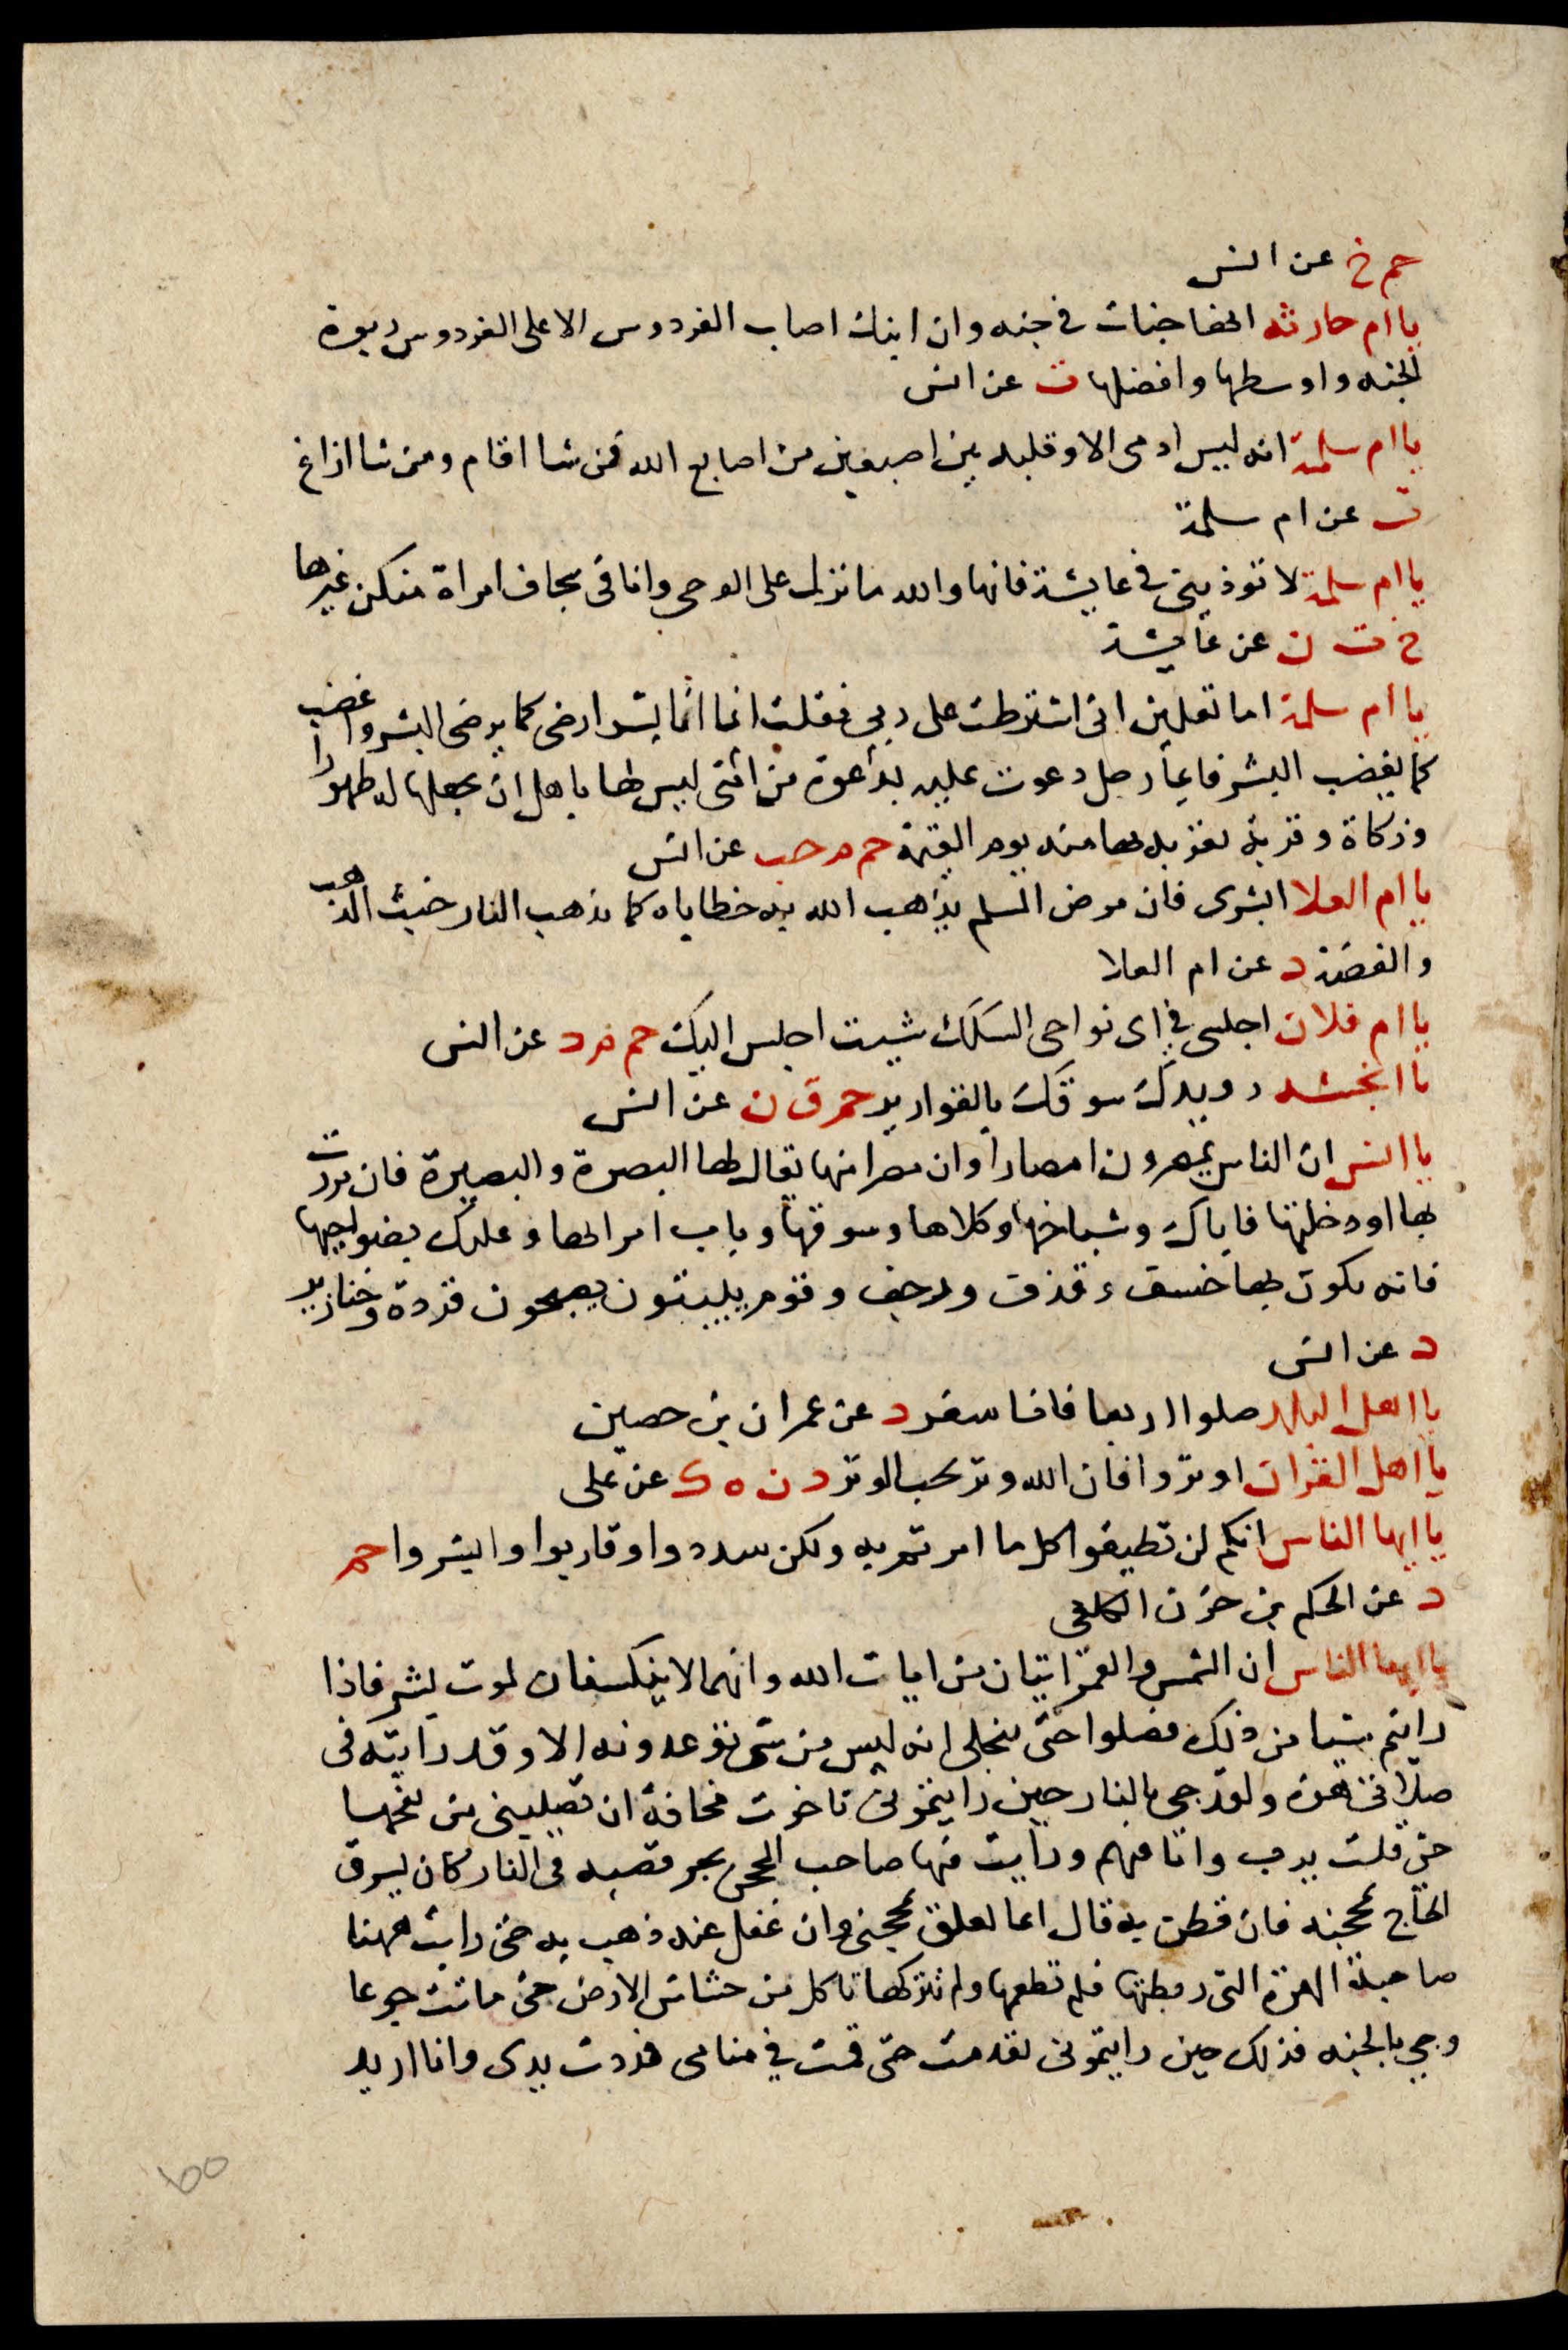 حم خ عن انس
يا ام حارثه انها جنات في جنه وان ابنك اصاب الفردوس الاعلى الفردوس ربوة
الجنه واوسطها وافضلها ت عن انس
يا ام سلمة انه ليس ادمى الا وقلبه بين اصبعين من اصابع الله فمن شا اقام ومن شا ازاغ
ت عن ام سلمة
يا ام سلمة لا توذيني في عايشة فانها والله ما نزل على الوحى وانا في لحاف امراة منكن غيرها
خ ت ن عن عايشة
يا ام سلمة اما تعلمين انى اشترطت على ربي فقلت انما انا بشر ارضى كما يرضى البشر واغضب
كما يغضب البشر فايما رجل دعوت عليه بدعوة من امتى ليس لها باهل ان يجعلها له طهورا
وزكاة وقربة تقربه بها منه يوم القيمة حم م حب عن انس
يا ام العلا ابشرى فان مرض المسلم يذهب الله به خطاياه كما تذهب النار خبث الذهب
والفضة د عن ام العلا
يا ام فلان اجلسى في اى نواحى السكك شيت اجلس اليك حم م د عن انس
يا انجشه رويدك سوقك بالقوارير حم ق ن عن انس
يا انس ان الناس يمصرون امصارا وان مصرا منها يقال لها البصرة والبصيرة فان مررت
بها او دخلتها فاياك وسباخها وكلاها وسوقها وباب امرايها وعليك بضواحيها
فانه يكون بها خسف وقذف ورجف وقوم يبيتون يصبحون قردة وخنازير
د عن انس
يا اهل البلد صلوا اربعا فانا سفر د عن عمران بن حصين
يا اهل القران اوتروا فان الله وتر يحب الوتر د ن ه ك عن على
يا ايها الناس انكم لن تطيقوا كل ما امرتم به ولكن سددوا وقاربوا وابشروا حم
د عن الحكم بن حزن الكلفى
يا ايها الناس ان الشمس والقمر ايتان من ايات الله وانهما لا ينكسفان لموت بشر فاذا
رايتم شيا من ذلك فصلوا حتى تنجلى انه ليس من شى توعدونه الا وقد رايته في
صلاتى هذه ولقد جى بالنار حين رايتمونى تاخرت مخافة ان تصيبنى من لفحها
حتى قلت يا رب وانا فيهم ورايت فيها صاحب المحجن يجر قصبه في النار كان يسرق
الحاج بمحجنه فان فطن به قال انما تعلق بمحجنى وان غفل عنه ذهب به حتى رايت فيها
صاحبة الهرة التى ربطتها فلم تطعمها ولم تتركها تاكل من خشاش الارض حتى ماتت جوعا
وجى بالجنه فذلك حين رايتمونى تقدمت حتى قمت في مقامى فمددت يدى وانا اريد